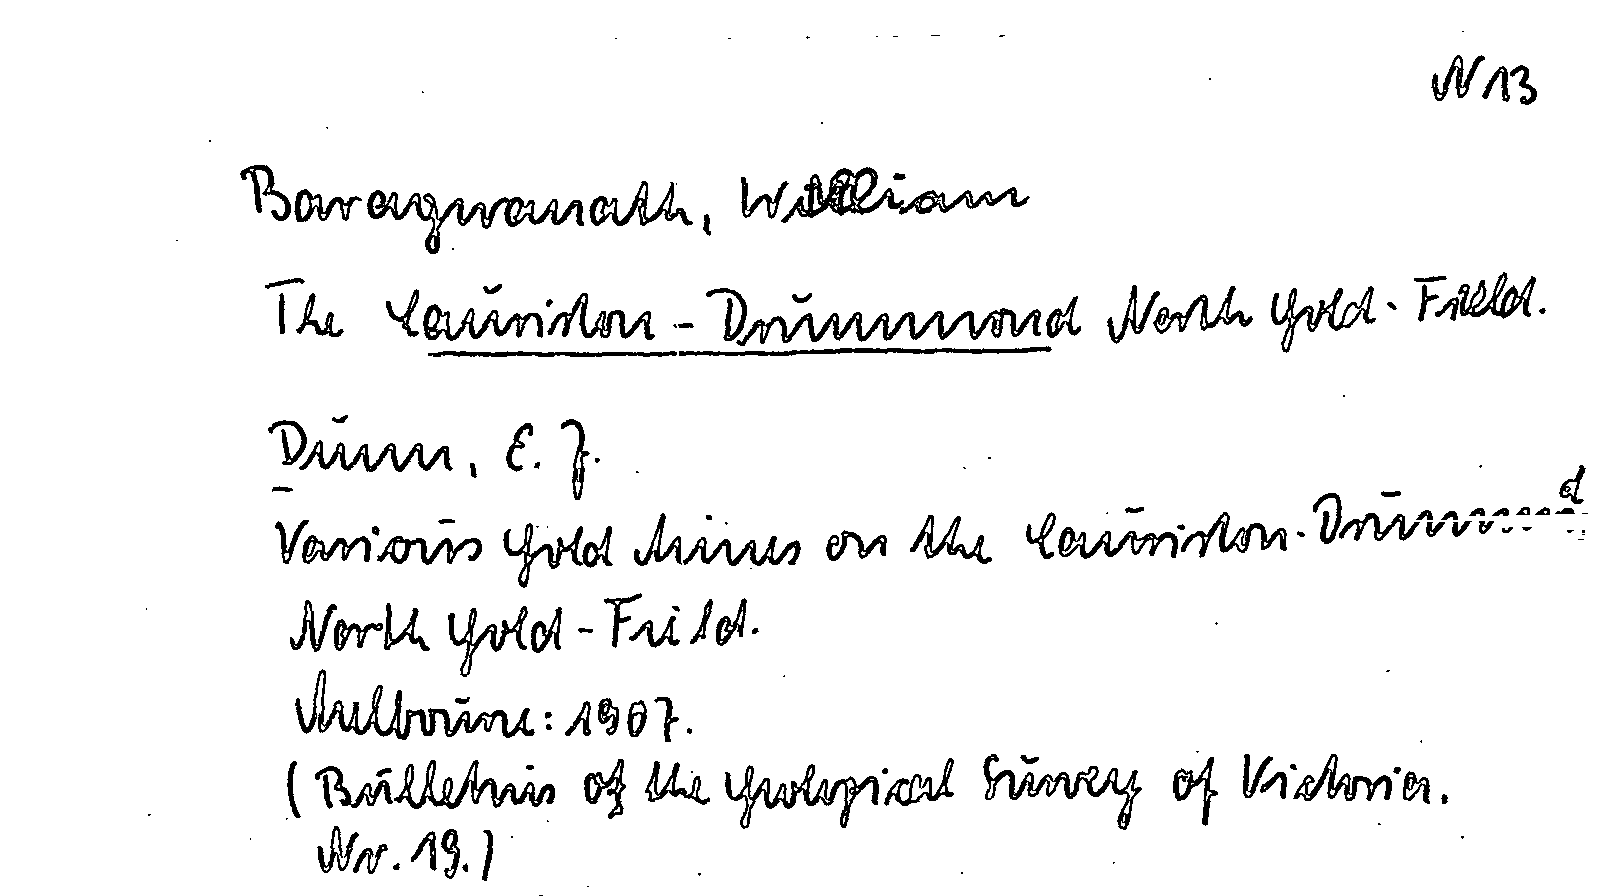 N 13
Baragwanath, William
The Lauriston-Drummond North Gold-Field.
Dunn, E. J.
Various Gold Mines on the Lauriston-Drummond
North Gold-Field.
Melbourne: 1907.
(Bulletins of the Geological Survey of Victoria.
Nr. 19.)